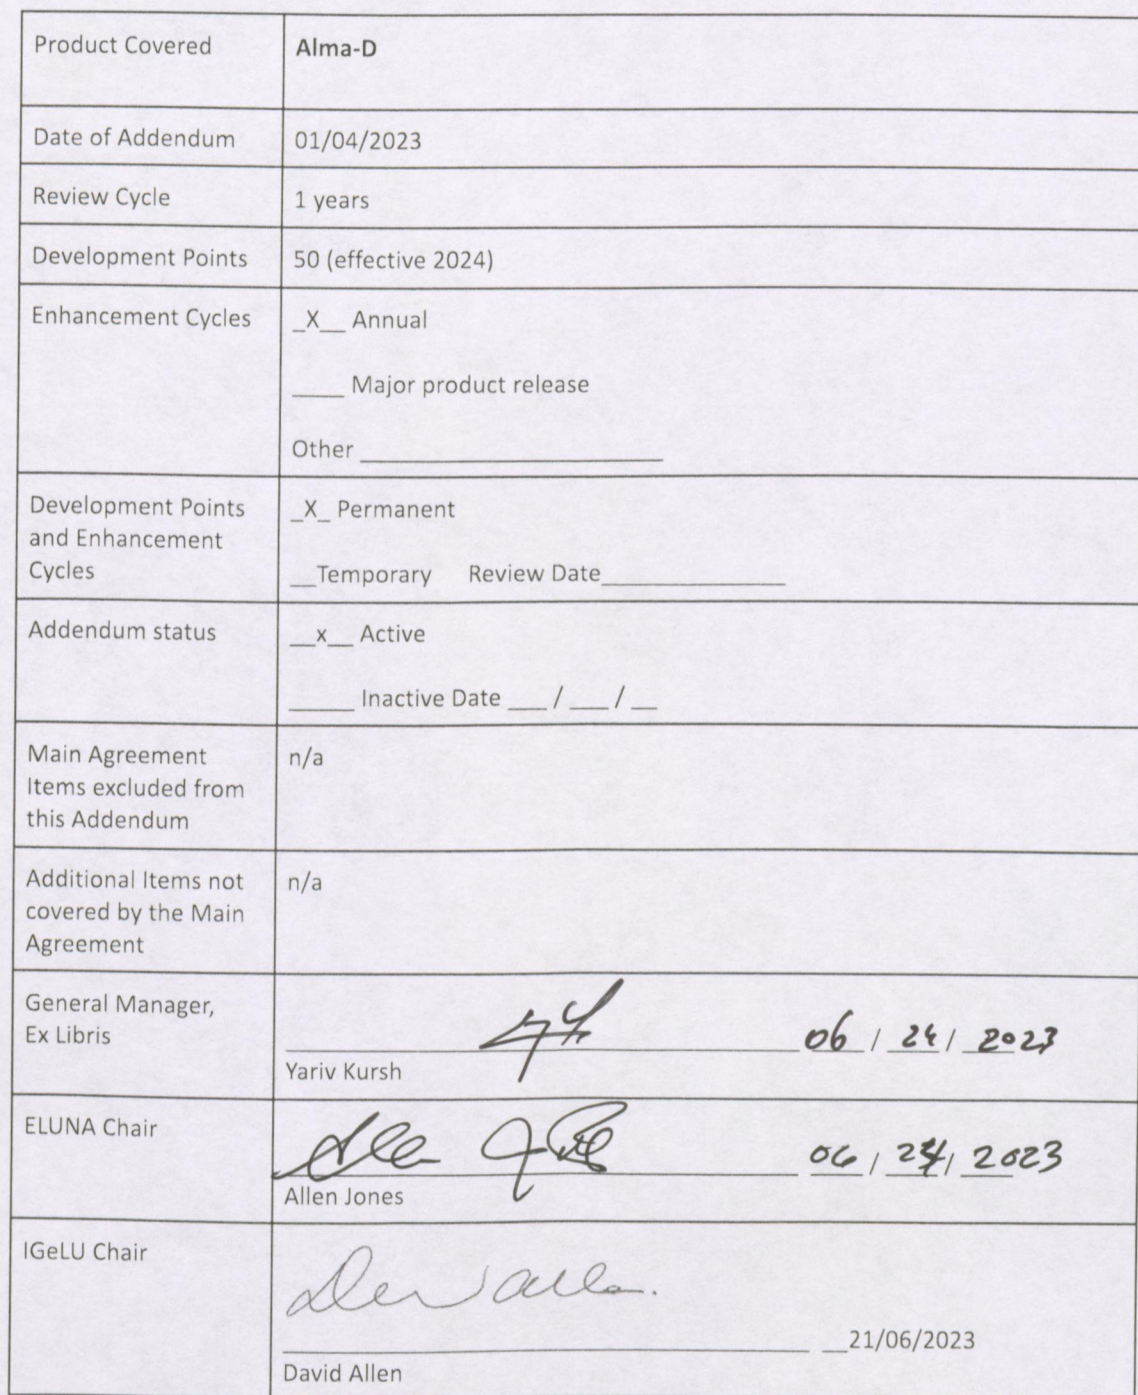 Product Covered
Alma-D
Date of Addendum
01/04/2023
Review Cycle
1 years
Development Points
50 (effective 2024)
Enhancement Cycles
_X__ Annual
____ Major product release
Other _______________________
Development Points
and Enhancement
Cycles
_X_ Permanent
__Temporary Review Date______________
Addendum status
__x__ Active
_____ Inactive Date ___ / ___ / __
Main Agreement
Items excluded from
this Addendum
n/a
Additional Items not
covered by the Main
Agreement
n/a
General Manager,
Ex Libris
06 / 24 / 2023
Yariv Kursh
ELUNA Chair
06 / 24 / 2023
Allen Jones
IGeLU Chair
__21/06/2023
David Allen